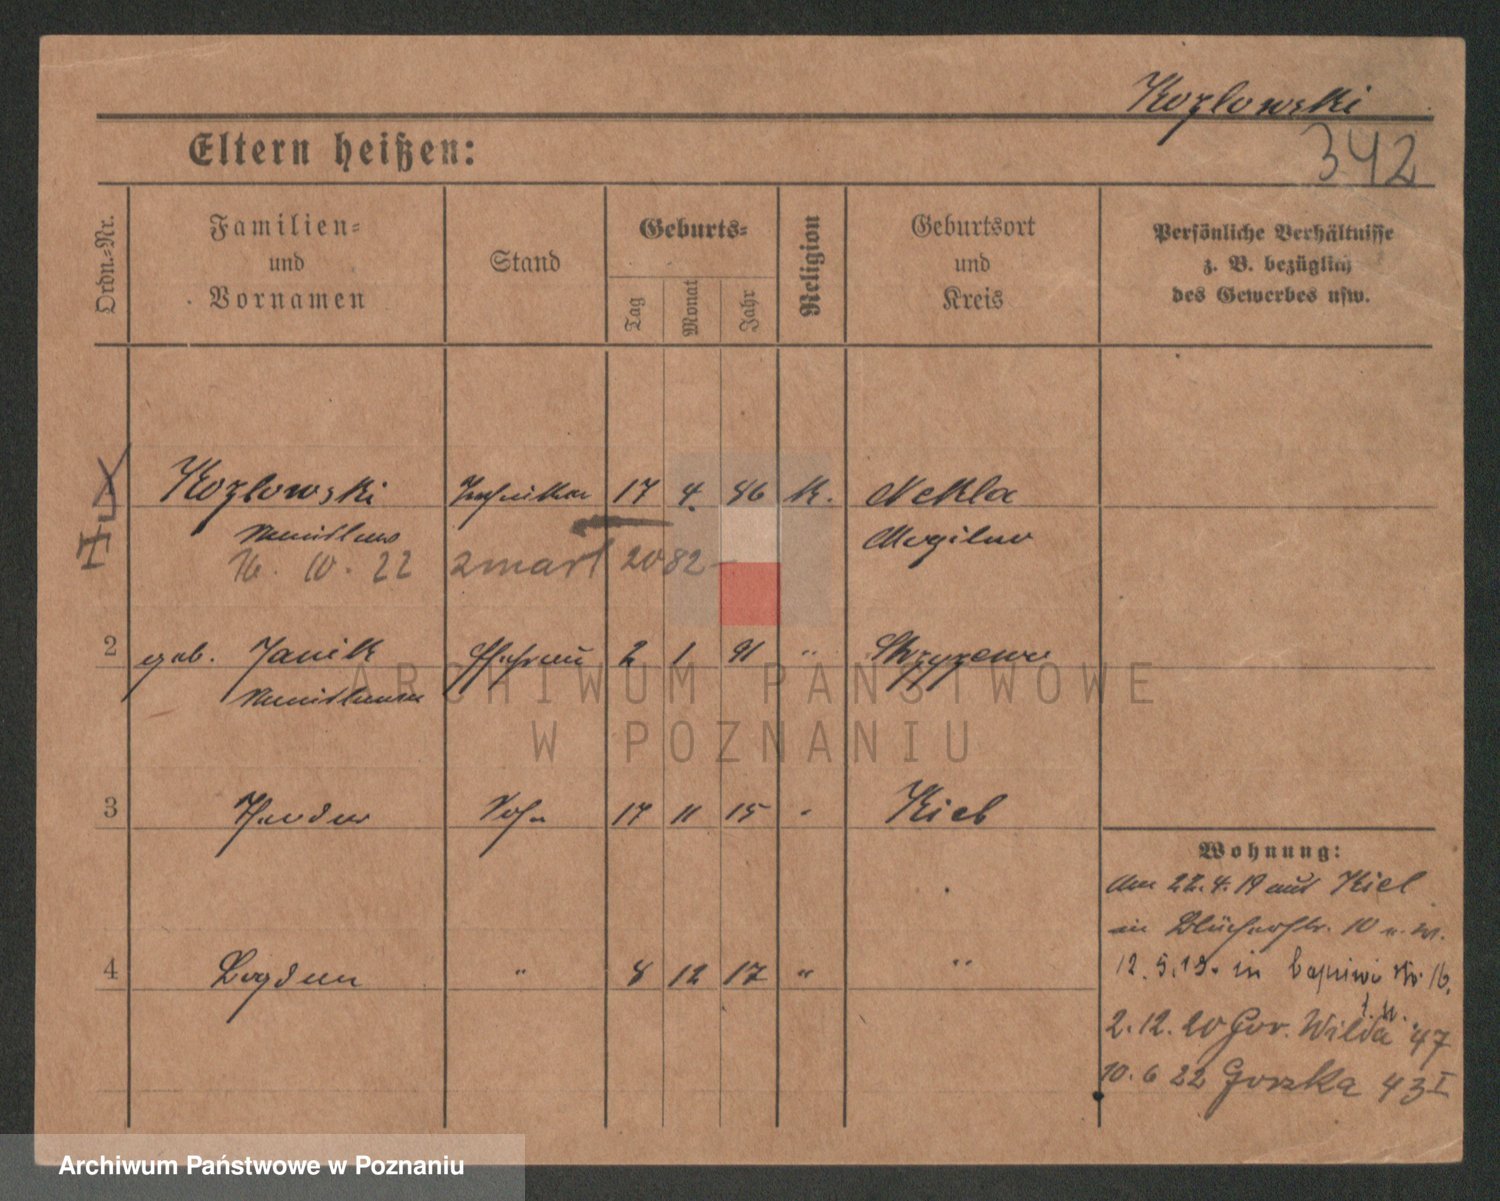 Kozlowski
342
Eltern heißen:
Ordn.-Nr.
Familien-
und
Vornamen
Stand
Geburts-
Tag
Monat
Jahr
Religion
Geburtsort
und
Kreis
Persönliche Verhältnisse
z. B. bezüglich
des Gewerbes usw.
Kozlowski Techniker 17 4. 86 K. Nekla
Stanislaus Mogilno
16. 10. 22 zmarł 2082
2 geb. Janik Ehefrau 2 1 91 " 
Stanislawa
3 Theodor Sohn 17 11 15 " Kiel
4 Bogdan " 8 12 17 " "
Wohnung:
Am 22.4.19 aus Kiel
in Blücherstr. 10 u. W.
12.5.19. in str. 16.
2.12.20 Gór. Wilda 47
10.6 22 Gorzka 43 I
ARCHIWUM PAŃSTWOWE
W POZNANIU
Archiwum Państwowe w Poznaniu